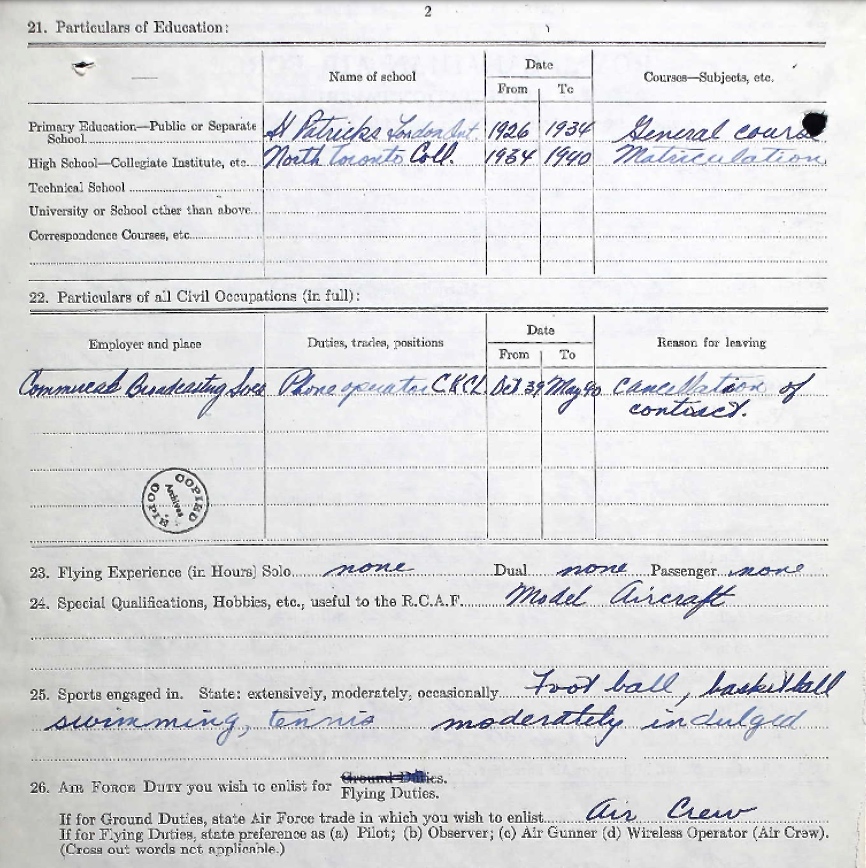 2
21. Particulars of Education:
Name of school
Date
From To
Courses—Subjects, etc.
Primary Education—Public or Separate
School St Patricks London Ont. 1926 1934 General course
High School—Collegiate Institute, etc. North Toronto Coll. 1934 1940 Matriculation
Technical School
University or School other than above
Correspondence Courses, etc
22. Particulars of all Civil Occupations (in full):
Employer and place
Duties, trades, positions
Date
From To
Reason for leaving
Broadcasting Phone operator CKCL Oct 39 May 40 Cancellation of
contract.
COPIED
Archives
COPIED
23. Flying Experience (in Hours) Solo none Dual none Passenger none
24. Special Qualifications, Hobbies, etc., useful to the R.C.A.F. Model Aircraft
25. Sports engaged in. State: extensively, moderately, occasionally Foot ball, basketball
swimming, tennis moderately indulged
26. AIR FORCE DUTY you wish to enlist for Ground Duties.
Flying Duties.
If for Ground Duties, state Air Force trade in which you wish to enlist Air Crew
If for Flying Duties, state preference as (a) Pilot; (b) Observer; (c) Air Gunner (d) Wireless Operator (Air Crew).
(Cross out words not applicable.)